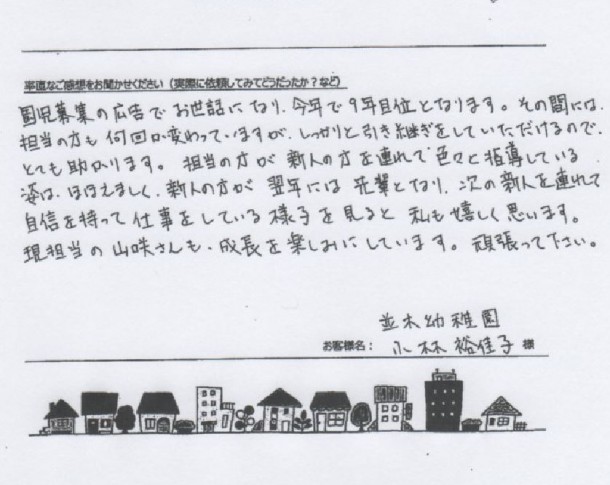 率直なご感想をお聞かせください（実際に依頼してみてどうだったか？など）
園児募集の広告でお世話になり、今年で9年目位となります。その間には、
担当の方も何回か変わっていますが、しっかりと引き継ぎをしていただけるので、
とても助かります。担当の方が新人の方を連れて色々と指導している
姿は、ほほえましく、新人の方が翌年には先輩となり、次の新人を連れて
自信を持って仕事をしている様子を見ると私も嬉しく思います。
現担当の山咲さんも、成長を楽しみにしています。頑張って下さい。
並木幼稚園
お客様名：小林裕佳子様